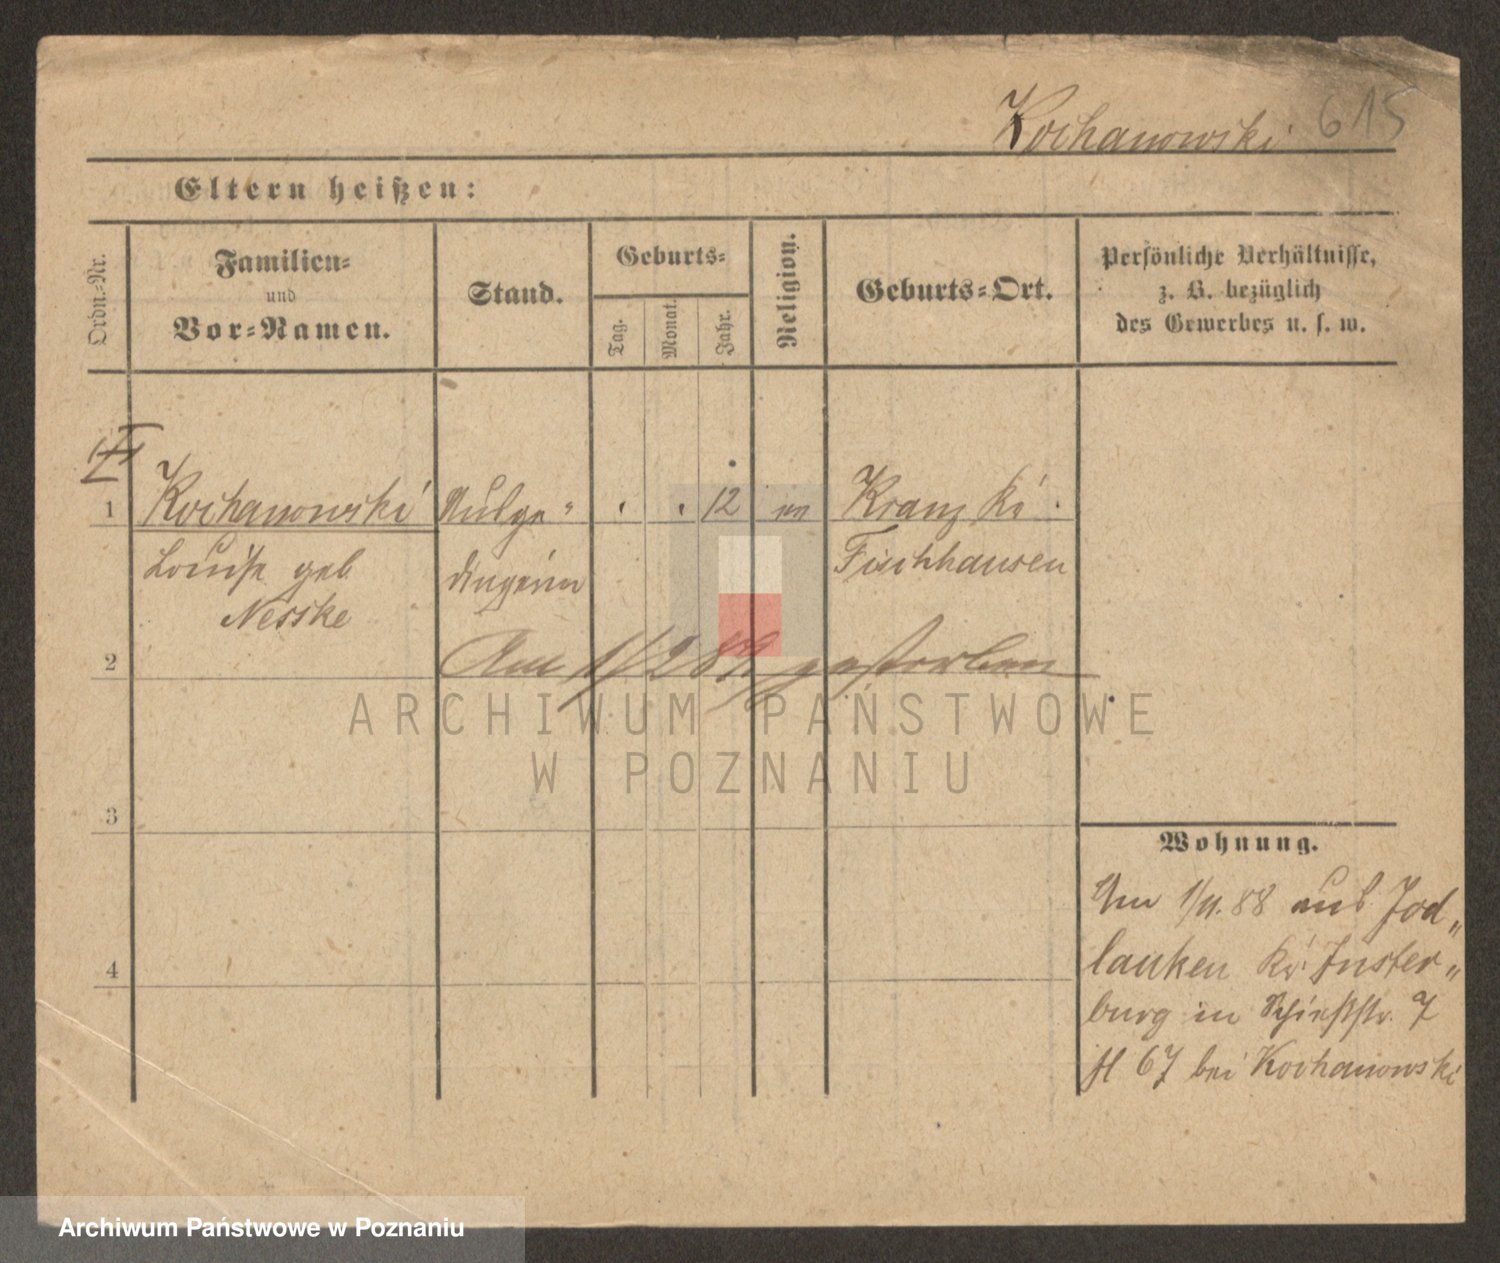 Kochanowski 615
Eltern heißen:
Ordn.-Nr.
Familien-
und
Vor-Namen.
Stand.
Geburts-
Tag.
Monat.
Jahr.
Religion.
Geburts-Ort.
Persönliche Verhältnisse,
z. B. bezüglich
des Gewerbes u. s. w.
1 Kochanowski Ausge- 12 Kranz Kr.
Louise geb. dingerin Fischhausen
Nesske
2 Am 1/2 89 gestorben
3
4
Wohnung.
Am 1/11. 88 aus Jod„
lauken Kr. Inster„
burg in Schießstr. 7
H 67 bei Kochanowski
ARCHIWUM PAŃSTWOWE
W POZNANIU
Archiwum Państwowe w Poznaniu